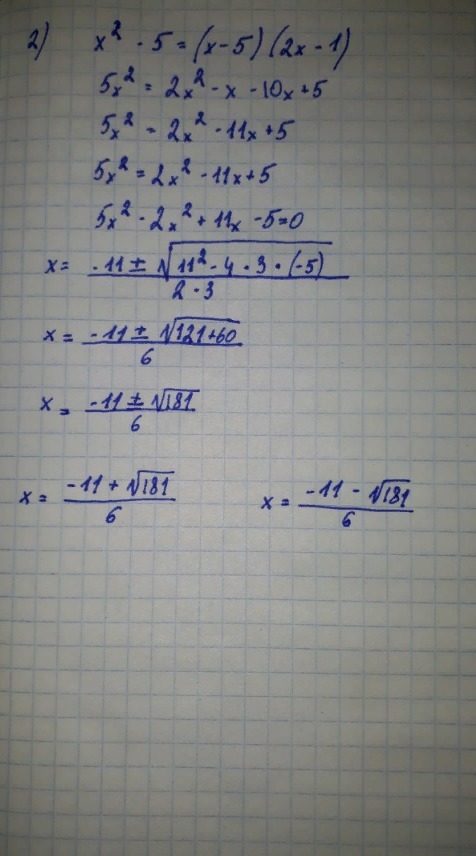 2) x² - 5 = (x-5) (2x - 1)
5x² = 2x² - x - 10x + 5
5x² = 2x² - 11x + 5
5x² = 2x² - 11x + 5
5x² - 2x² + 11x - 5 = 0
x = (-11 ± √(11² - 4 · 3 · (-5))) / (2 · 3)
x = (-11 ± √(121+60)) / 6
x = (-11 ± √181) / 6
x = (-11 + √181) / 6    x = (-11 - √181) / 6